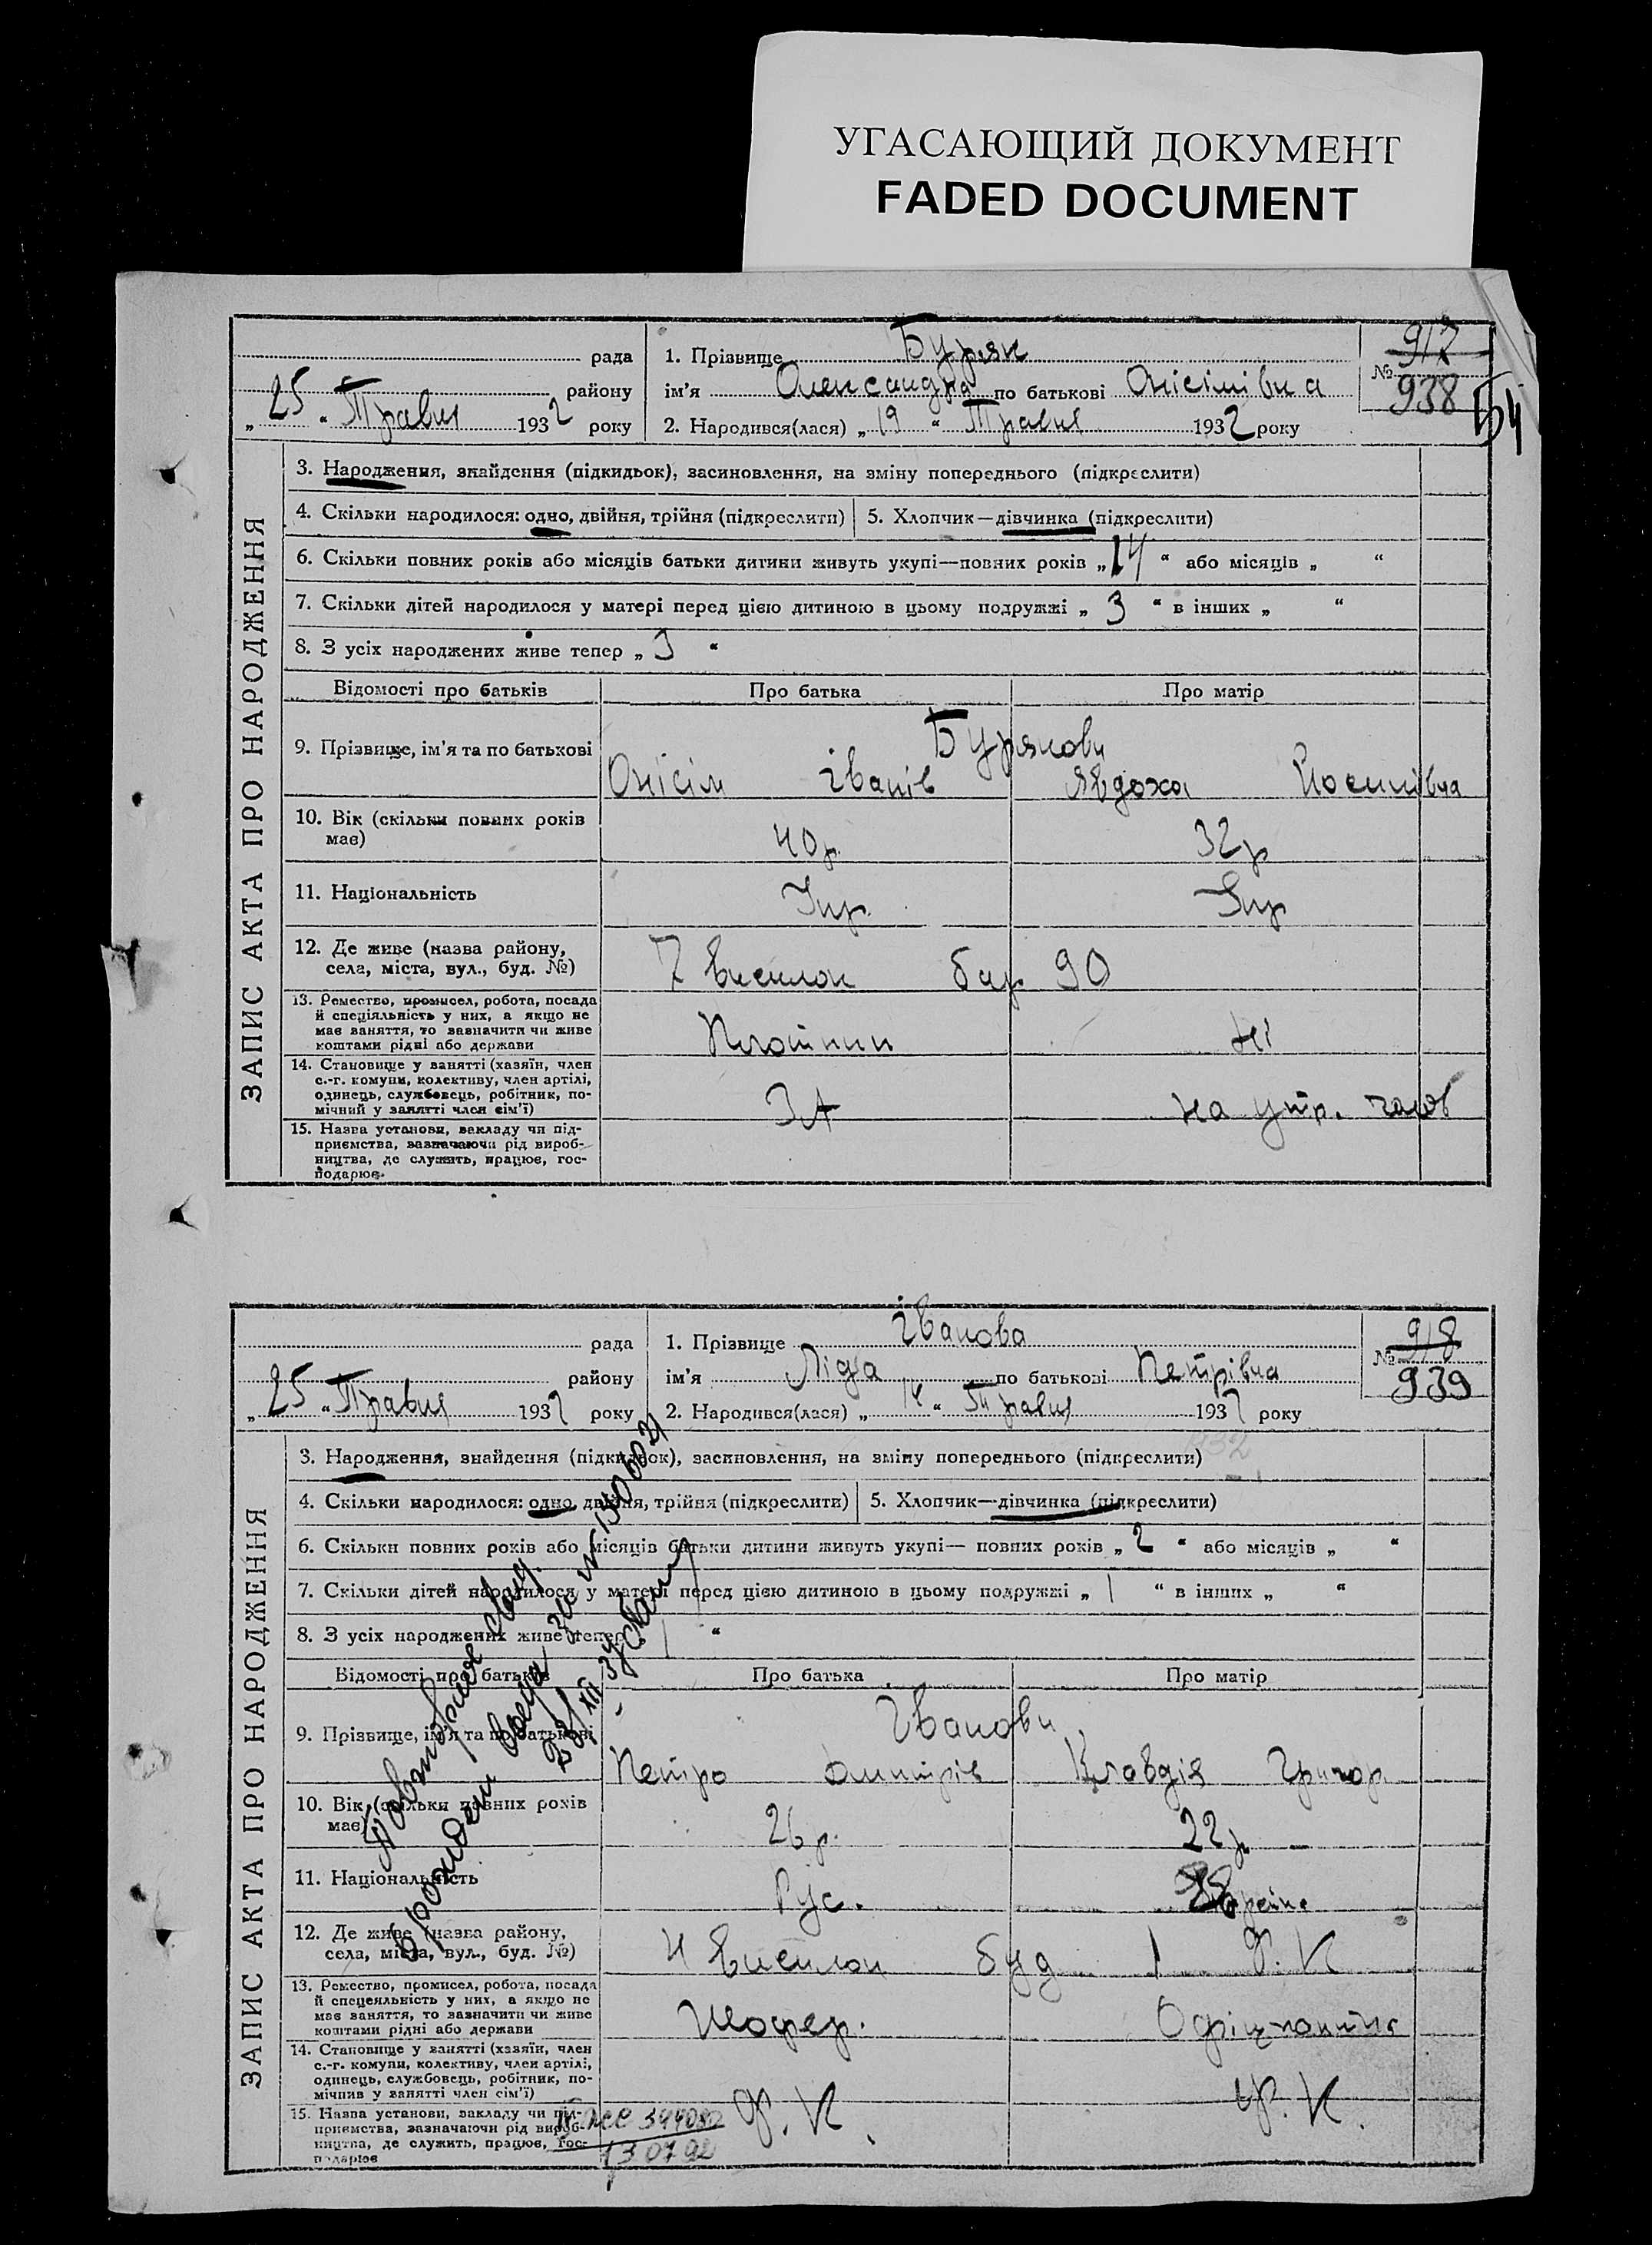 УГАСАЮЩИЙ ДОКУМЕНТ
FADED DOCUMENT
ЗАПИС АКТА ПРО НАРОДЖЕННЯ
рада
району
„ 25 “ Травня 1932 року
1. Прізвище Буряк
ім'я Олександра по батькові Онісімівна
2. Народився(лася) „ 19 “ Травня 1932 року
917
№ 938
3. Народження, знайдення (підкидьок), засиновлення, на зміну попереднього (підкреслити)
4. Скільки народилося: одно, двійня, трійня (підкреслити) 5. Хлопчик—дівчинка (підкреслити)
6. Скільки повних років або місяців батьки дитини живуть укупі—повних років „ 14 “ або місяців „ “
7. Скільки дітей народилося у матері перед цією дитиною в цьому подружжі „ 3 “ в інших „ “
8. З усіх народжених живе тепер „ 3 “
Відомості про батьків Про батька Про матір
Бурякови
9. Прізвище, ім'я та по батькові Онісім Іванів Явдоха Йосипівна
10. Вік (скільки повних років має) 40 р. 32 р
11. Національність Укр. Укр
12. Де живе (назва району, села, міста, вул., буд. №) 7 виселок бар 90
13. Ремество, промисел, робота, посада й спеціяльність у них, а якщо не має заняття, то зазначити чи живе коштами рідні або держави Плотник Ні
14. Становище у занятті (хазяїн, член с.-г. комуни, колективу, член артілі, одинець, службовець, робітник, помічний у занятті член сім'ї) на утр.
15. Назва установи, закладу чи підприємства, зазначаючи рід виробництва, де служить, працює, господарює
ЗАПИС АКТА ПРО НАРОДЖЕННЯ
рада
району
„ 25 “ Травня 1932 року
1. Прізвище Іванова
ім'я Ліда по батькові Петрівна
2. Народився(лася) „ 14 “ Травня 1932 року
918
№ 939
1932
3. Народження, знайдення (підкидьок), засиновлення, на зміну попереднього (підкреслити)
4. Скільки народилося: одно, двійня, трійня (підкреслити) 5. Хлопчик—дівчинка (підкреслити)
6. Скільки повних років або місяців батьки дитини живуть укупі— повних років „ 2 “ або місяців „ “
7. Скільки дітей народилося у матері перед цією дитиною в цьому подружжі „ 1 “ в інших „ “
8. З усіх народжених живе тепер 1 “
Відомості про батьків Про батька Про матір
Іванови
9. Прізвище, ім'я та по батькові Петро Дмитрів Клавдія Григор.
10. Вік (скільки повних років має) 26 р. 22 р
11. Національність Рус.
12. Де живе (назва району, села, міста, вул., буд. №) 4 виселок буд 1 Ф. К
13. Ремество, промисел, робота, посада й спецеяльність у них, а якщо не має заняття, то зазначити чи живе коштами рідні або держави Шофер. Офіціантка
14. Становище у занятті (хазяїн, член с.-г. комуни, колективу, член артілі, одинець, службовець, робітник, помічнив у занятті член сім'ї)
15. Назва установи, закладу чи підприємства, зазначаючи рід виробництва, де служить, працює, господарює Ф. К. Ф. К.
Повторное свид.
о рождении выдан